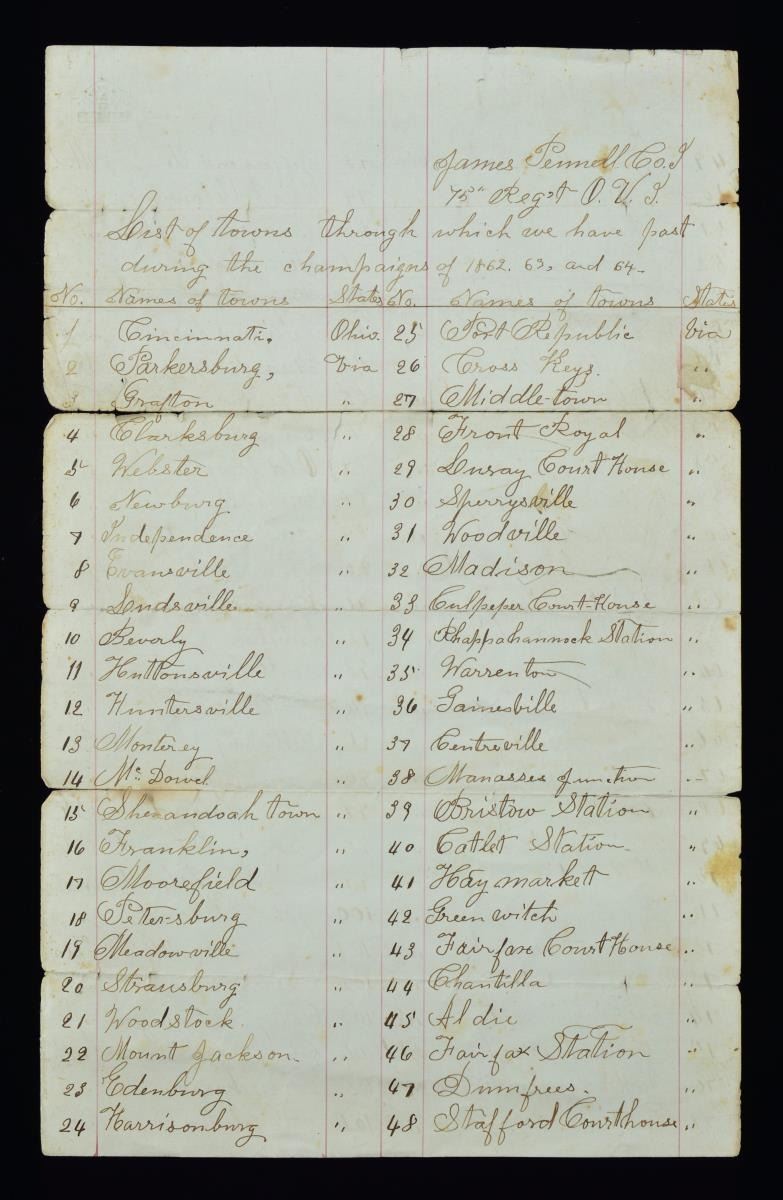 James Pennell Co. I
75" Reg't O. V. I.
List of towns through which we have past
during the champaigns of 1862. 63, and 64.
No. Names of towns States No. Names of towns States
1 Cincinnati, Ohio. 25 Port Republic Via
2 Parkersburg, Via 26 Cross Keys. "
3 Grafton " 27 Middle-town "
4 Clarksburg " 28 Front Royal "
5 Webster " 29 Luray Court House "
6 Newburg " 30 Sperrysville "
7 Independence " 31 Woodville "
8 Evansville " 32 Madison "
9 Lendsville " 33 Culpeper Court-House "
10 Beverly " 34 Rhappahannock Station "
11 Huttonsville " 35 Warrenton "
12 Huntersville " 36 Gainesville "
13 Monterey " 37 Centreville "
14 Mc Dowel " 38 Manasses junction "
15 Shenandoah town " 39 Bristow Station "
16 Franklin, " 40 Catlet Station "
17 Moorefield " 41 Hay market "
18 Petersburg " 42 Green witch "
19 Meadow-ville " 43 Fairfax Court House "
20 Strausburg " 44 Chantilla "
21 Woodstock. " 45 Aldie "
22 Mount Jackson. " 46 Fairfax Station "
23 Edenburg " 47 Dumfrees. "
24 Harrisonburg " 48 Stafford Courthouse "